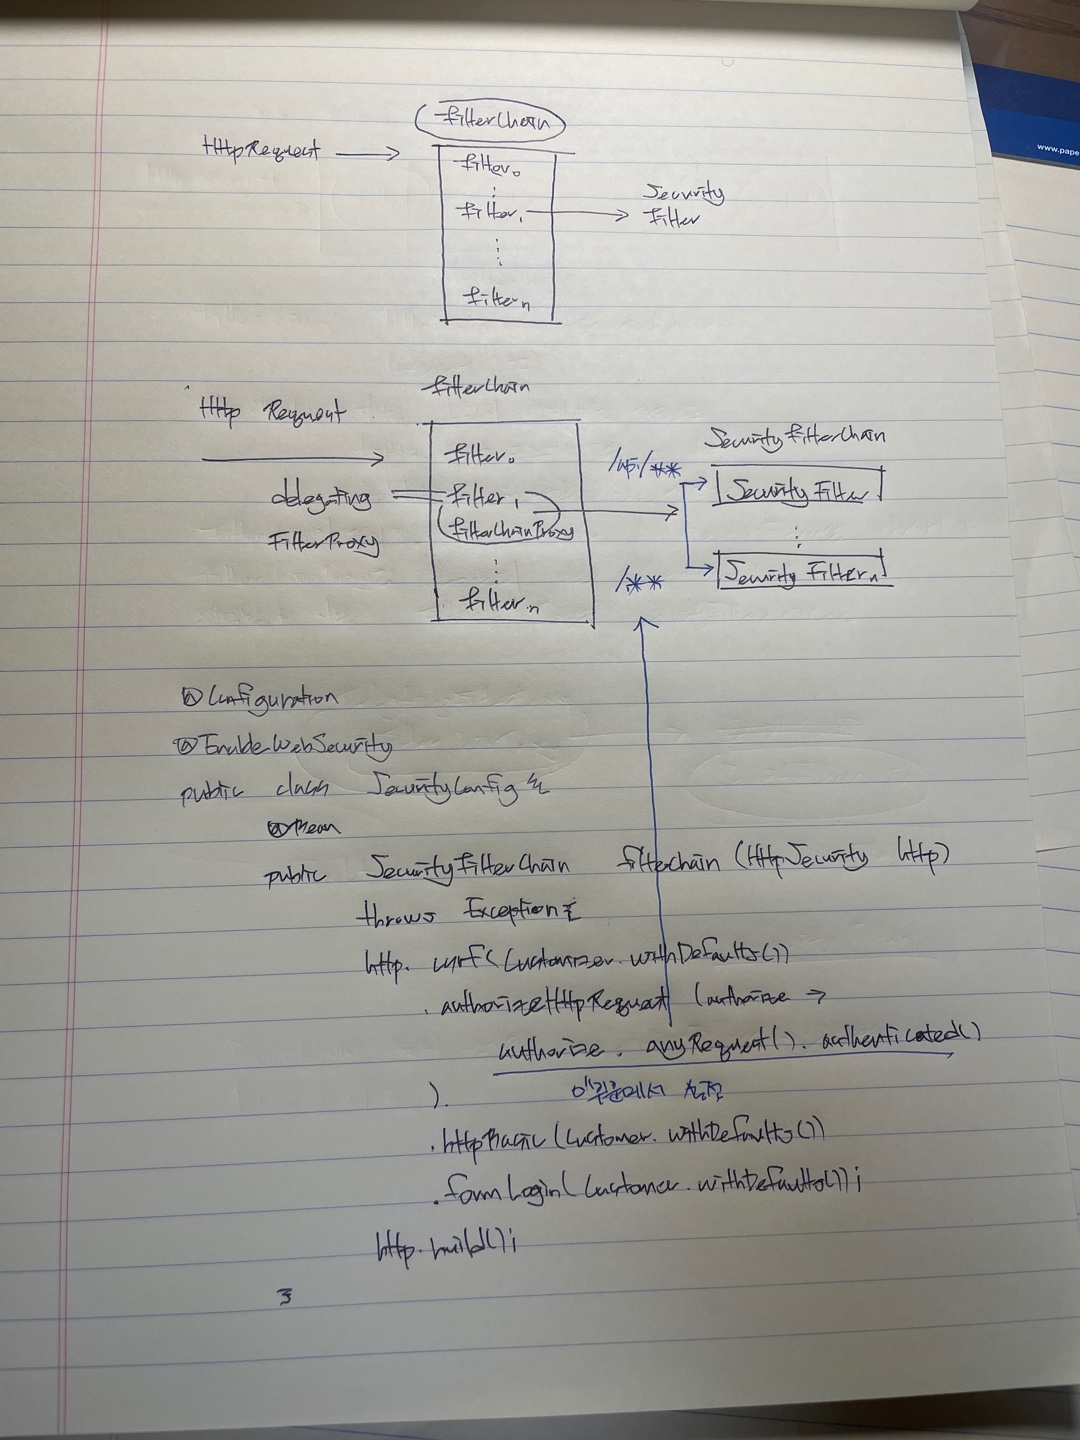 www.pape
filterChain
HttpRequest →
filter0
filter1 → Security
Filter
filtern
filterChain
Http Request
filter0
delegating
FilterProxy
filter1
filterChainProxy
filtern
/api/**
/**
SecurityFilterChain
Security Filter
Security Filtern
@Configuration
@EnableWebSecurity
public class SecurityConfig {
@Bean
public SecurityFilterChain filterchain (HttpSecurity http)
throws Exception {
http. csrf(Customizer.withDefaults())
.authorizeHttpRequest (authorize →
authorize. anyRequest(). authenticated()
).
설정
.httpBasic (Customer. withDefaults())
.formLogin( Customer. withDefaults());
http.build();
}